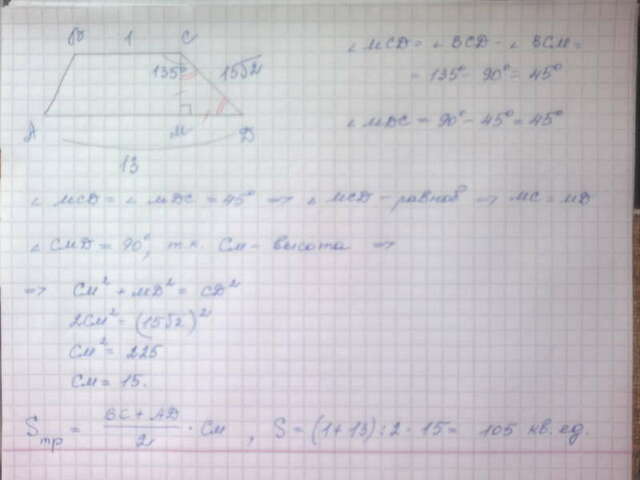 В 1 С
135° 15√2
А М Д
13
∠ MCD = ∠ BCD - ∠ BCM =
= 135° - 90° = 45°
∠ MDC = 90° - 45° = 45°
∠ MCD = ∠ MDC = 45° => ∠ MCD - равноб => MC = MD
∠ CMD = 90°, т.к. CM - высота =>
=> CM² + MD² = CD²
2CM² = (15√2)²
CM² = 225
CM = 15.
Sтр = (BC + AD)/2 · CM , S = (1+13):2 · 15 = 105 кв. ед.